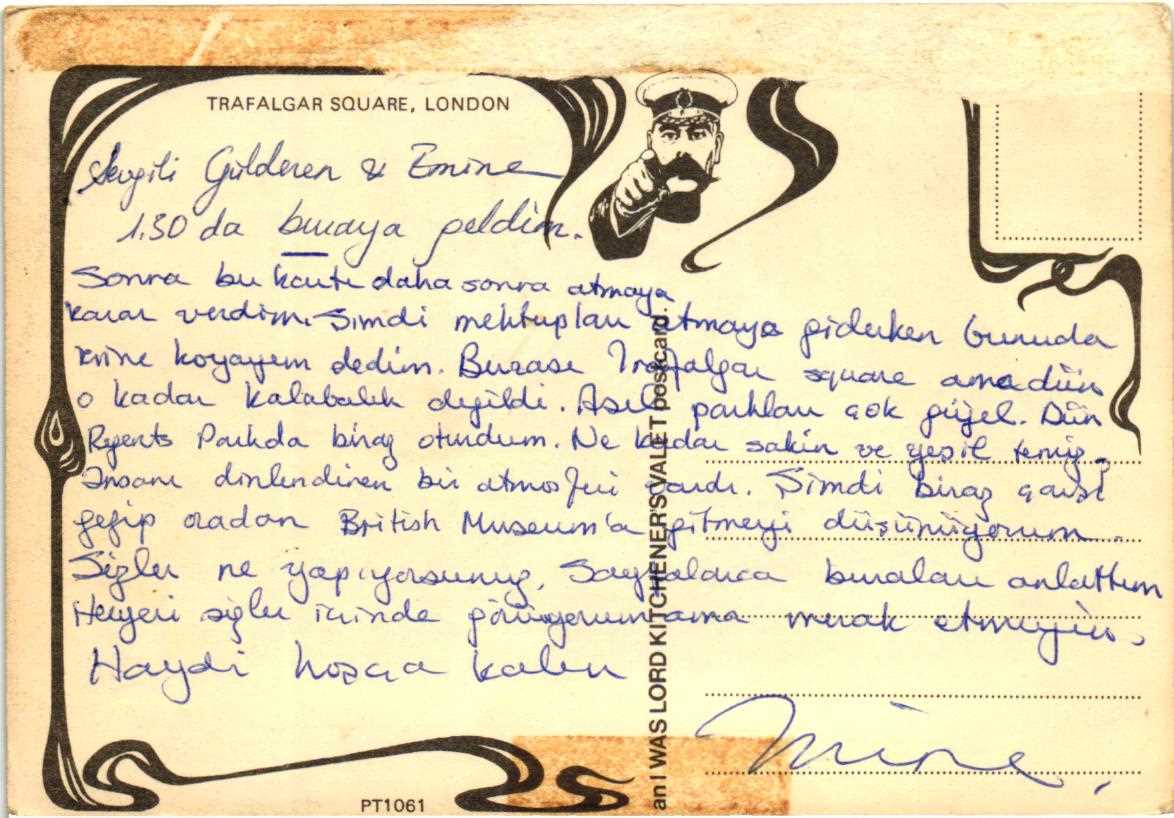 TRAFALGAR SQUARE, LONDON
Sevgili Gülderen & Emine
1.30 da buraya geldim.
Sonra bu kartı daha sonra atmaya
karar verdim. Şimdi mektupları atmaya giderken bunuda
içine koyayım dedim. Burası Trafalgar square ama dün
o kadar kalabalık değildi. Asıl parkları çok güzel. Dün
Regents Parkda biraz oturdum. Ne kadar sakin ve yeşil temiz.
İnsanı dinlendiren bir atmosferi vardı. Şimdi biraz çarşı
gezip oradan British Museum'a gitmeyi düşünüyorum.
Sizler ne yapıyorsunuz, buraları anlattım
Heryeri sizler içinde görüyorum ama merak etmeyin.
Haydi hoşça kalın
Mine.
an I WAS LORD KITCHENER'S VALET postcard.
PT1061